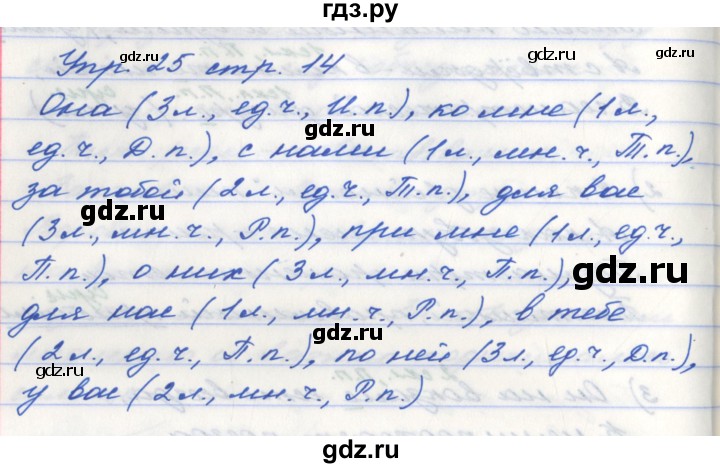 гдз.ру
Упр. 25 стр. 14
Она (3л., ед.ч., И.п.), ко мне (1л.,
ед.ч., Д.п.), с нами (1л., мн.ч., Т.п.),
за тобой (2л., ед.ч., Т.п.), для вас
(3л., мн.ч., Р.п.), при мне (1л., ед.ч.,
П.п.), о них (3л., мн.ч., П.п.),
для нас (1л., мн.ч., Р.п.), в тебе
(2л., ед.ч., П.п.), по ней (3л., ед.ч., Д.п.),
у вас (2л., мн.ч., Р.п.)
gdz.ru
gdz.ru
gdz.ru
gdz.ru
gdz.ru
gdz.ru
gdz.ru